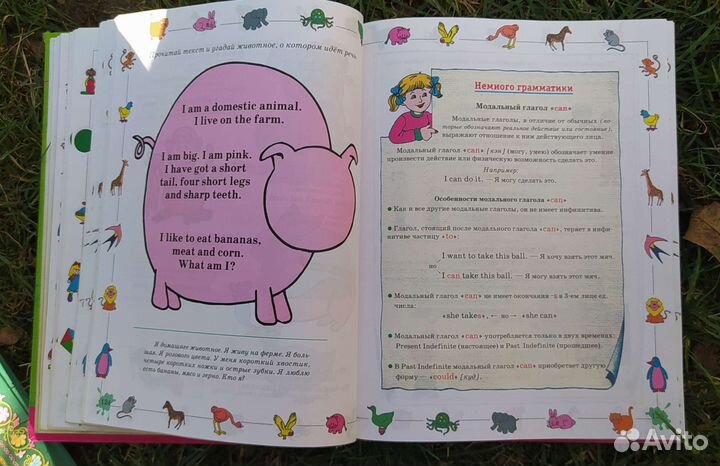 Прочитай текст и угадай животное, о котором идёт речь.
I am a domestic animal.
I live on the farm.
I am big. I am pink.
I have got a short
tail, four short legs
and sharp teeth.
I like to eat bananas,
meat and corn.
What am I?
Я домашнее животное. Я живу на ферме. Я боль-
шая. Я розового цвета. У меня короткий хвостик,
четыре коротких ножки и острые зубки. Я люблю
есть бананы, мясо и зерно. Кто я?
124
Немного грамматики
Модальный глагол «can»
Модальные глаголы, в отличие от обычных (ко-
торые обозначают реальное действие или состояние),
выражают отношение к ним действующего лица.
Модальный глагол «can» [кэн] (могу, умею) обозначает умение
произвести действие или физическую возможность сделать это.
Например:
I can do it. — Я могу сделать это.
Особенности модального глагола «can»
Как и все другие модальные глаголы, он не имеет инфинитива.
Глагол, стоящий после модального глагола «can», теряет в инфи-
нитиве частицу «to»:
I want to take this ball. — Я хочу взять этот мяч.
но
I can take this ball. — Я могу взять этот мяч.
Модальный глагол «can» не имеет окончания -s в 3-ем лице ед.
числа:
«she takes», ← но → «she can»
Модальный глагол «can» употребляется только в двух временах:
Present Indefinite (настоящее) и Past Indefinite (прошедшее).
В Past Indefinite модальный глагол «can» приобретает другую
форму — «could» [куд].
Avito